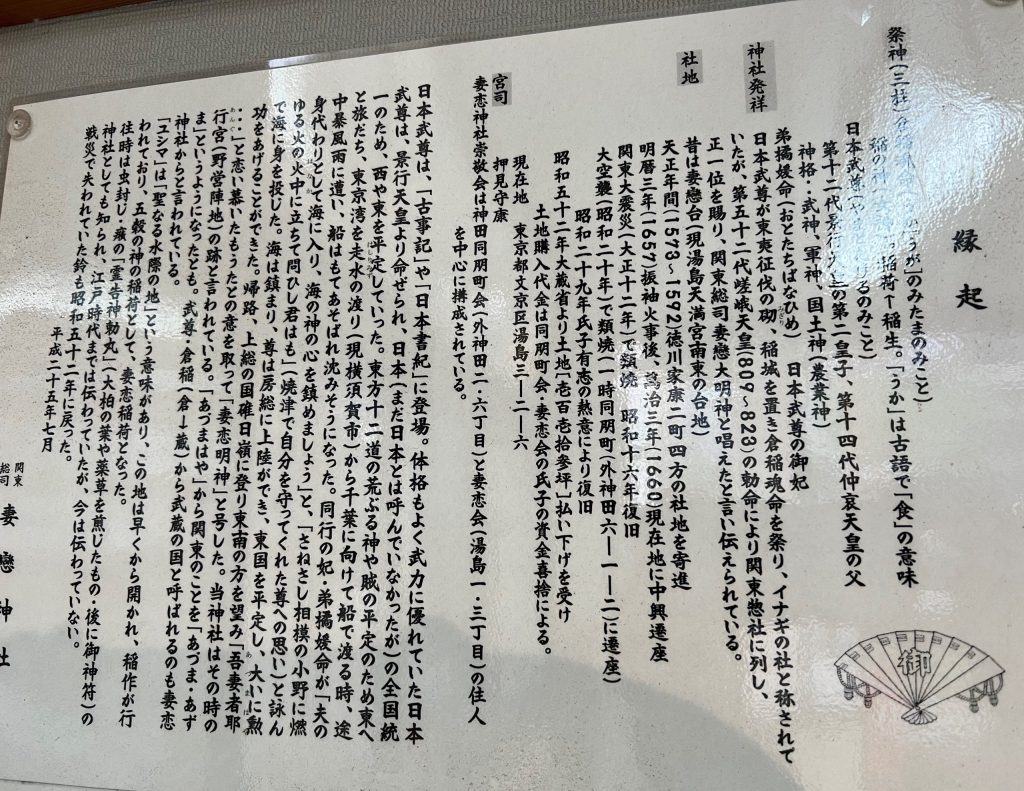 縁起
祭神(三柱)
のみたまのみこと)
稲の神 稲荷↑稲生。「うか」は古語で「食」の意味
日本武尊 るのみこと)
第十二代景行天皇の第二皇子、第十四代仲哀天皇の父
神格・武神、軍神、国土神(農業神)
弟橘媛命(おとたちばなひめ) 日本武尊の御妃
神社発祥
日本武尊が東夷征伐の砌、稲城を置き倉稲魂命を祭り、イナギの社と称されて
いたが、第五十二代嵯峨天皇(809~823)の勅命により関東惣社に列し、
正一位を賜り、関東総司妻戀大明神と唱えたと言い伝えられている。
社地
昔は妻恋台(現湯島天満宮南東の台地)
天正年間(1573~1592)徳川家康二町四方の社地を寄進
明暦三年(1657)振袖火事後、萬治三年(1660)現在地に中興遷座
関東大震災(大正十二年)で類焼 昭和十六年復旧
大空襲(昭和二十年)で類焼(一時同朋町(外神田六ー一ー二)に遷座)
昭和二十九年氏子有志の熱意により復旧
昭和五十二年大蔵省より土地[壱百壱拾参坪]払い下げを受け
土地購入代金は同朋町会・妻恋会の氏子の資金喜捨による。
現在地 東京都文京区湯島三ー二ー六
宮司 押見守康
妻恋神社崇敬会は神田同朋町会(外神田二・六丁目)と妻恋会(湯島一・三丁目)の住人
を中心に構成されている。
日本武尊は、「古事記」や「日本書紀」に登場。体格もよく武力に優れていた日本
武尊は、景行天皇より命ぜられ、日本(まだ日本とは呼んでいなかったが)の全国統
一のため、西や東を平定していった。東方十二道の荒ぶる神や賊の平定のため東へ
と旅だち、東京湾を走水の渡り(現横須賀市)から千葉に向けて船で渡る時、途
中暴風雨に遭い、船はもてあそばれ沈みそうになった。同行の妃・弟橘媛命が「夫の
身代わりとして海に入り、海の神の心を鎮めましょう」と、「さねさし相摸の小野に燃
ゆる火の火中に立ちて問ひし君はも」(焼津で自分を守ってくれた尊への思い)と詠ん
で海に身を投じた。海は鎮まり、尊は房総に上陸ができ、東国を平定し、大いに勲
功をあげることができた。帰路、上総の国碓日嶺に登り東南の方を望み「吾妻者耶
・・・」と恋い慕いたもうたとの意を取って「妻恋明神」と号した。当神社はその時の
行宮(野営陣地)の跡と言われている。「あづまはや」から関東のことを「あづま・あず
ま」というようになったとも。武尊・倉稲(倉↓蔵)から武蔵の国と呼ばれるのも妻恋
神社からと言われている。
「ユシマ」は「聖なる水際の地」という意味があり、この地は早くから開かれ、稲作が行
われており、五穀の神の稲荷として、妻恋稲荷となった。
往時は虫封じ・癪の「霊告神勅丸」(大柏の葉や薬草を煎じたもの・後に御神符)の
神社としても知られ、江戸時代までは伝わっていたが、今は伝わっていない。
戦災で失われていた鈴も昭和五十二年に戻った。
平成二十五年七月
関東総司 妻戀神社
御